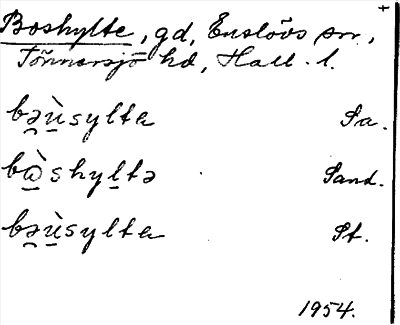 +
Boshylte, gd, Enslövs sn,
Tönnersjö hd, Hall. l.
bəùsylta Sa.
bàshyltə Sand.
bəùsylta St.
1954.